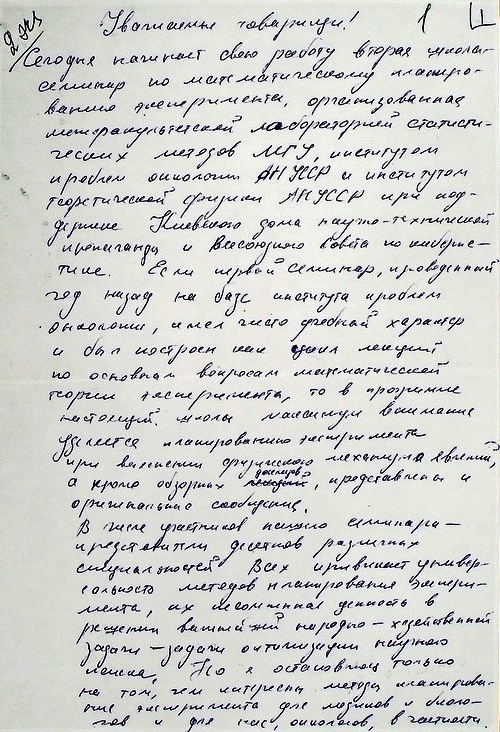 2 экз
Уважаемые товарищи! 1
Сегодня начинает свою работу вторая школа-
семинар по математическому планиро-
ванию эксперимента, организованная
межфакультетской лабораторией статисти-
ческих методов МГУ, институтом
проблем онкологии АН УССР и институтом
теоретической физики АН УССР при под-
держке Киевского дома научно-технической
пропаганды и Всесоюзного Совета по киберне-
тике. Если первый семинар, проведенный
год назад на базе института проблем
онкологии, имел чисто учебный характер
и был построен как цикл лекций
по основным вопросам математической
теории эксперимента, то в программе
настоящей школы максимум внимания
уделяется планированию эксперимента
при выяснении физического механизма явлений,
а кроме обзорных докладов, представлены и
оригинальные сообщения.
В числе участников нашего семинара —
представители десятков различных
специальностей. Всех привлекает универ-
сальность методов планирования экспери-
мента, их несомненная ценность в
решении важнейшей народно-хозяйственной
задачи — задачи оптимизации научного
поиска. Но я остановлюсь только
на том, чем интересны методы планирова-
ния эксперимента для медиков и биоло-
гов и для нас, онкологов, в частности.